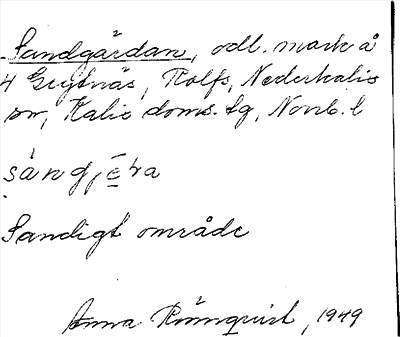 Sandgärdan, odl. mark å
4 Grytnäs, Rolfs, Nederkalix
sn, Kalix doms. lg, Norrb. l
sàngjæ̀ra
Sandigt område
Anna Rönnquist, 1949